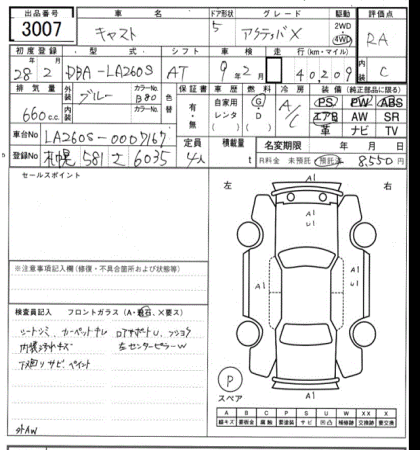 出品番号 車名 グレード ドア形状 駆動 評価点
3007 キャスト アクティバX 5 2WD 4WD RA
初度登録 型式 シフト 車検 走行(km・マイル) 内装
28年2月 DBA-LA260S AT 9年2月 40,209 C
排気量 外装 カラーNo. 色替 保証書 車歴 燃料 冷房 装備(純正部品に限る)
660cc ブルー B80 有・無 自家用 レンタ G・D A/C PS PW ABS
カラーNo. エアB AW SR
車台No LA260S-0007167 定員 積載量 革 ナビ TV
登録No 札幌 581 さ 6035 4人 t 名変期限 年 月 日
R料金 未預託 預託 8,550円
セールスポイント
左 右
A1
A1
U1
A1
A1
A1
※注意事項記入欄(修復・不具合箇所および状態等)
検査員記入 フロントガラス(A・飛石、X要ス)
シートシミ カーペットキレ
内装汚れキズ 左センターピラーW
下廻りサビ ペイント
外AW
P
スペア
A B C P S U W X XX
線キズ 要鈑金 腐触 要塗装 サビ 凹凸 補修跡 交換跡 要交換